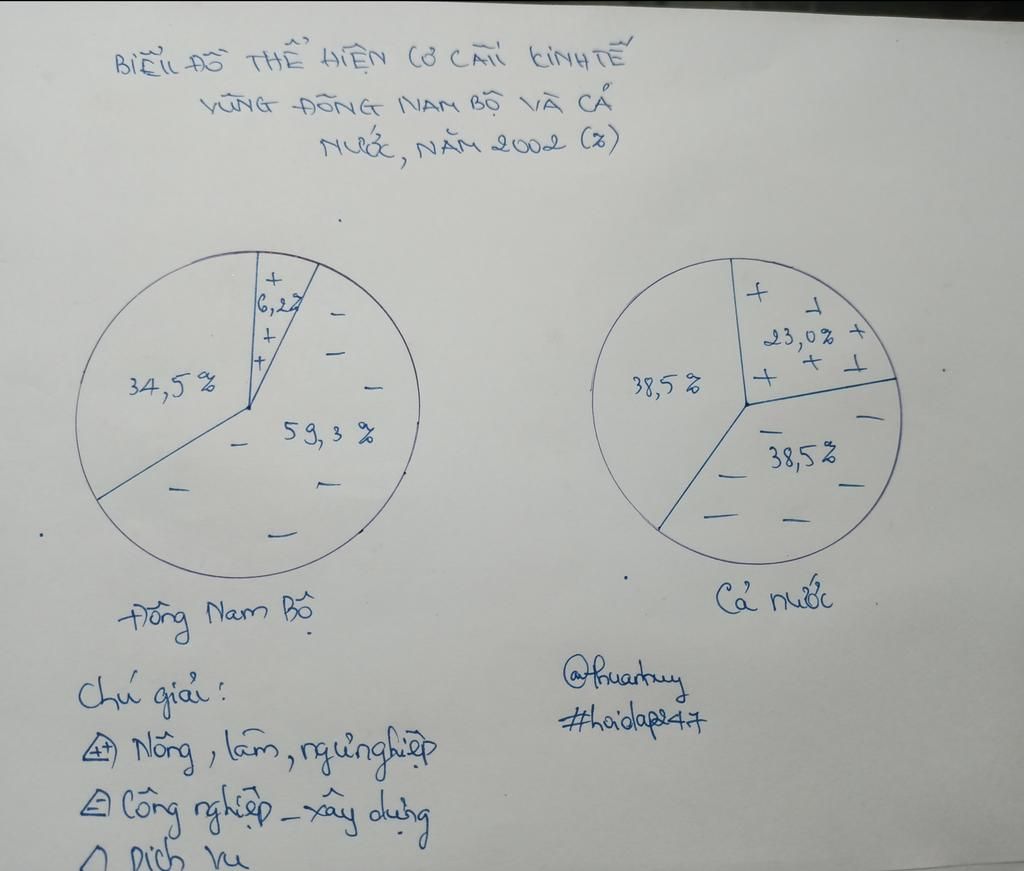 BIỂU ĐỒ THỂ HIỆN CƠ CẤU KINH TẾ
VÙNG ĐÔNG NAM BỘ VÀ CẢ
NƯỚC, NĂM 2002 (%)
6,2%
34,5%
59,3%
23,0%
38,5%
38,5%
Đông Nam Bộ
Cả nước
Chú giải:
Nông, lâm, ngư nghiệp
Công nghiệp - xây dựng
Dịch vụ
#hoidap247